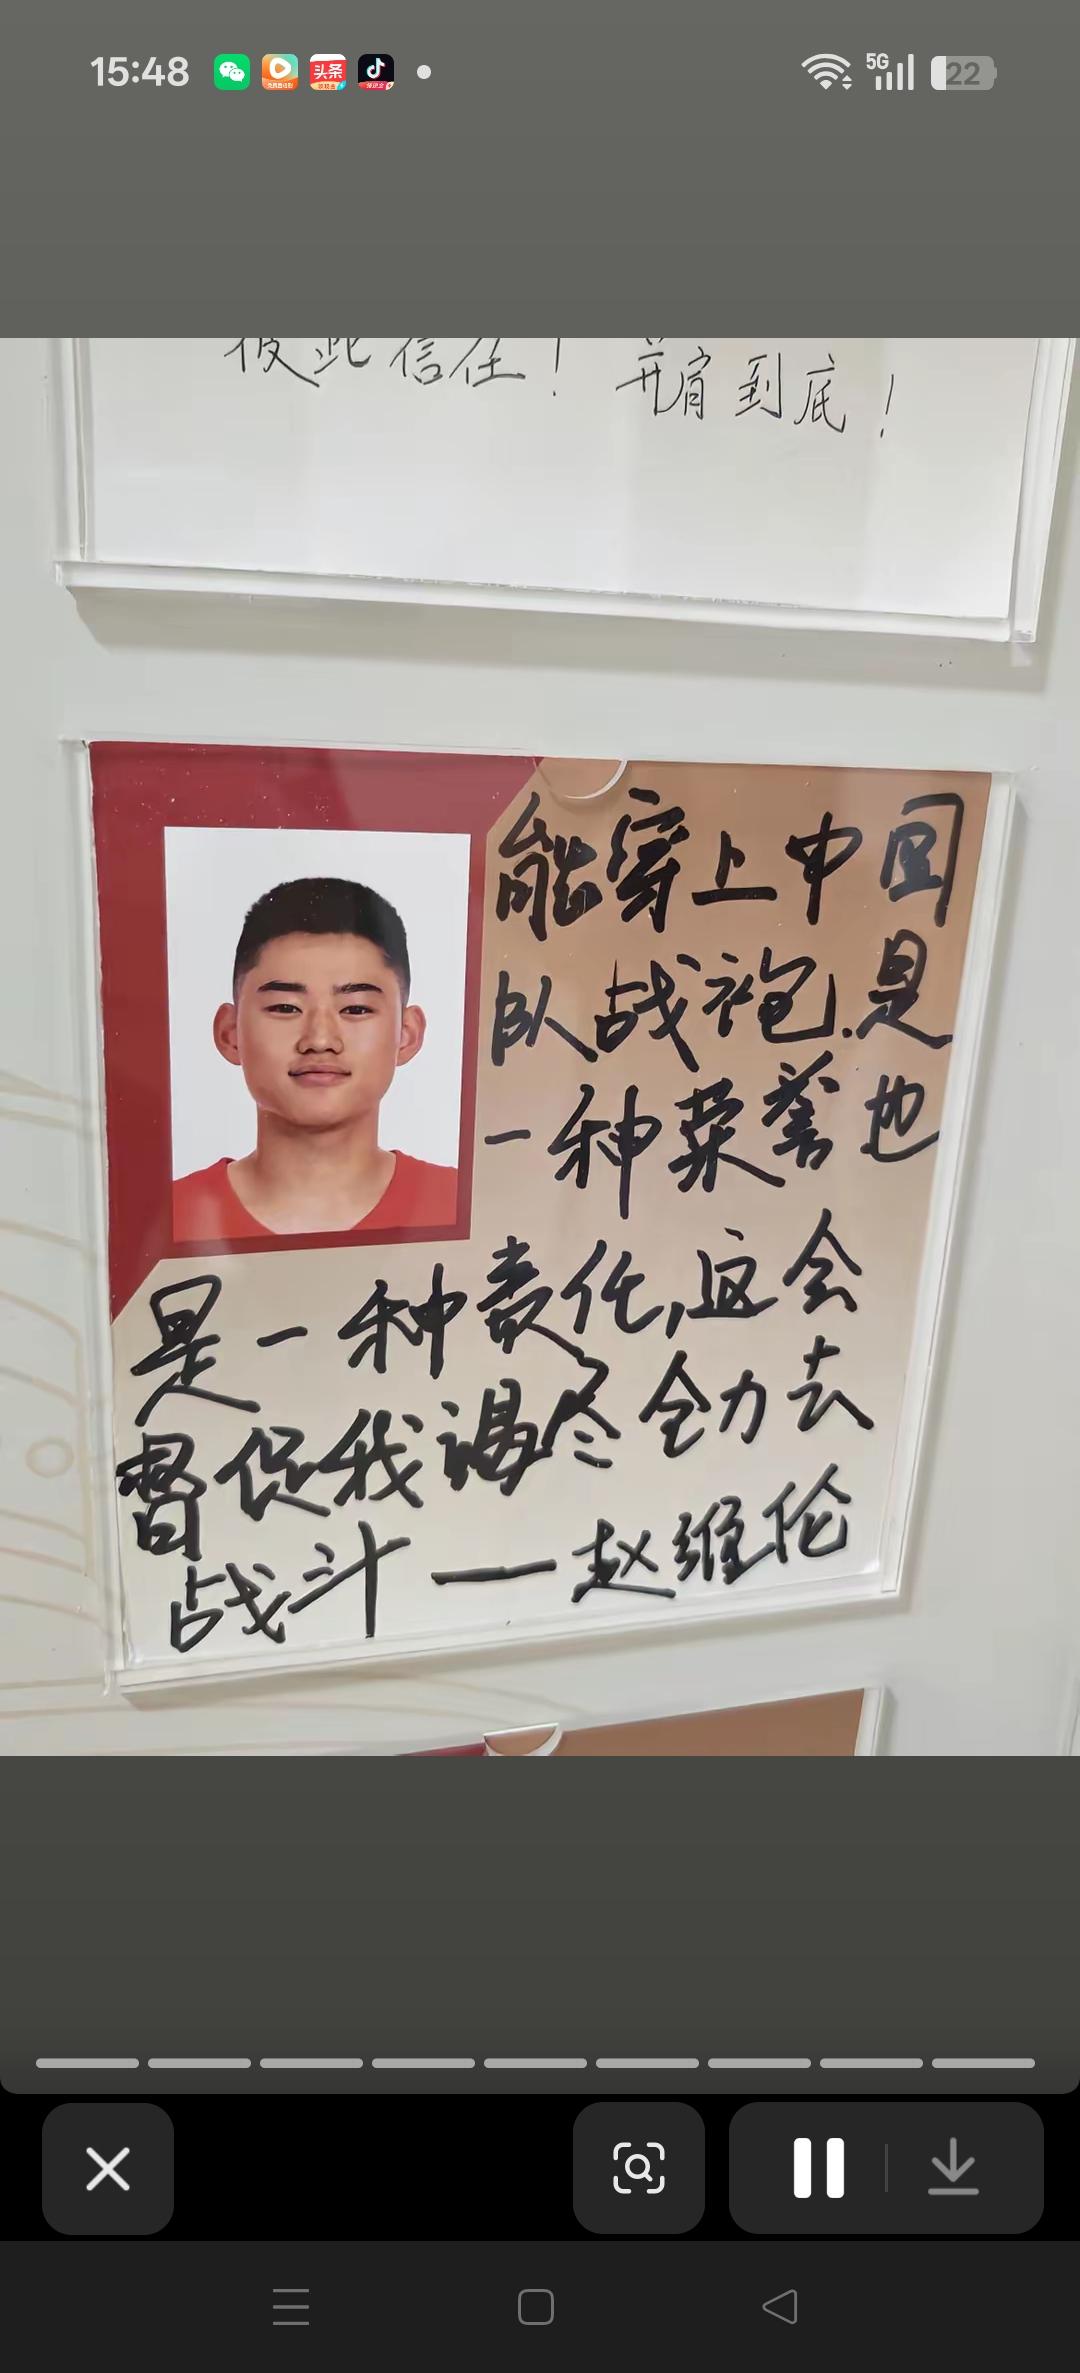 15:48 头条 5G 22
彼此信任！并肩到底！
能穿上中国
队战袍.是
一种荣誉也
是一种责任,这会
督促我竭尽全力去
战斗—赵维伦